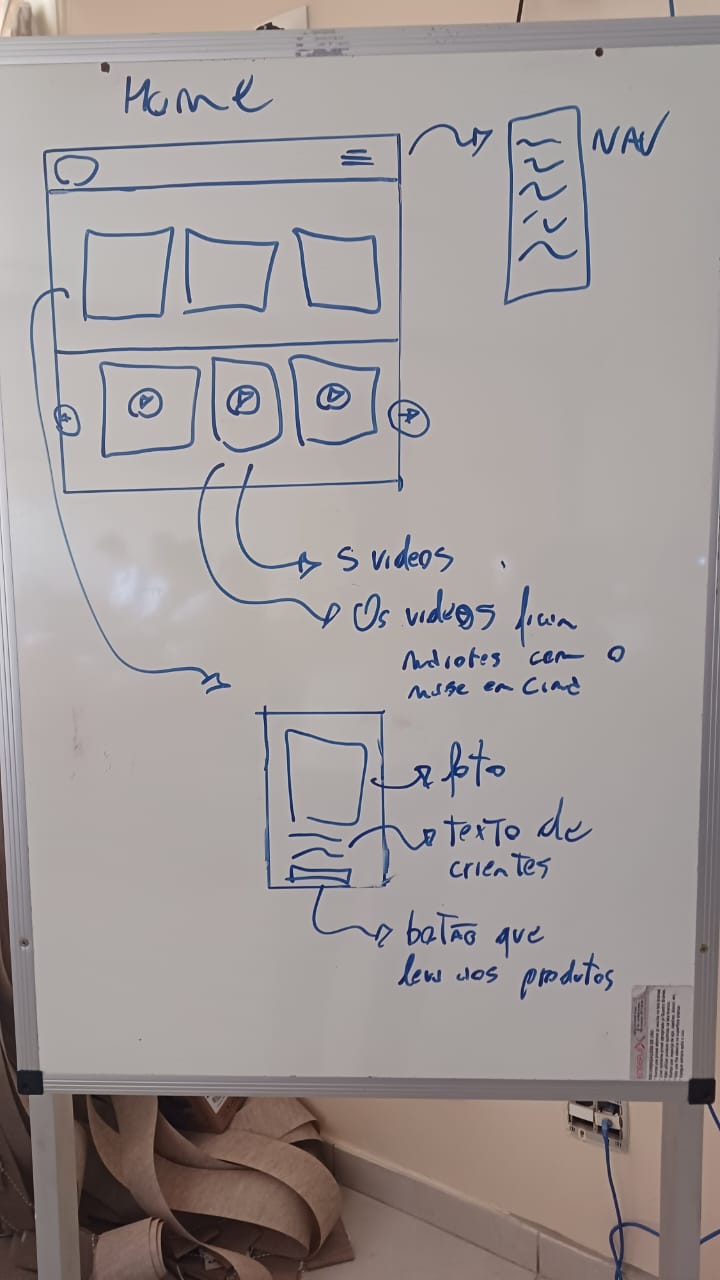 Home
NAV
5 videos
Os videos ficam
com o
mouse em cima
foto
texto de
crientes
batão que
leva aos produtos